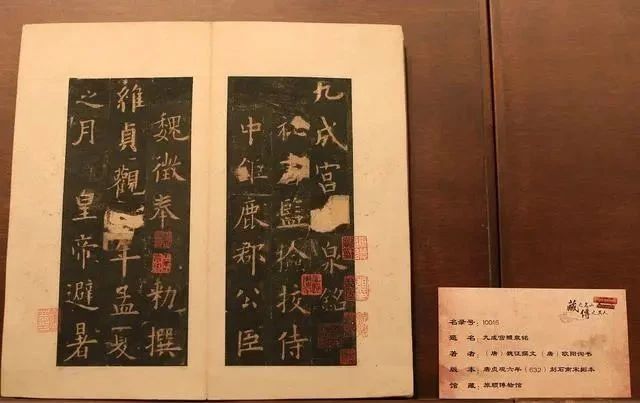 九成宮泉銘
秘書監撿挍侍
中鉅鹿郡公臣
魏徵奉 勑撰
維貞觀年孟夏
之月 皇帝避暑
藏之名山
傳之其人
名录号：10015
题 名：九成宫醴泉铭
著 者：（唐）魏征撰文（唐）欧阳询书
版 本：唐贞观六年（632）刻石南宋拓本
馆 藏：旅顺博物馆